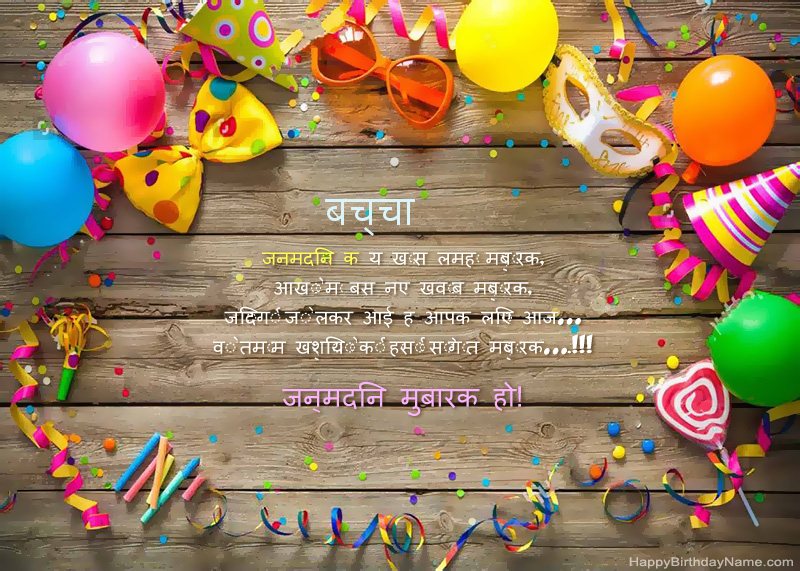 बच्चा
जन्मदिन के ये खास लम्हें मुबारक,
आँखों में बसे नए ख्वाब मुबारक,
जिंदगी जो लेकर आई है आपके लिए आज...
वो तमाम खुशियों की हंसीं सौगात मुबारक...!!!
जन्मदिन मुबारक हो!
HappyBirthdayName.com